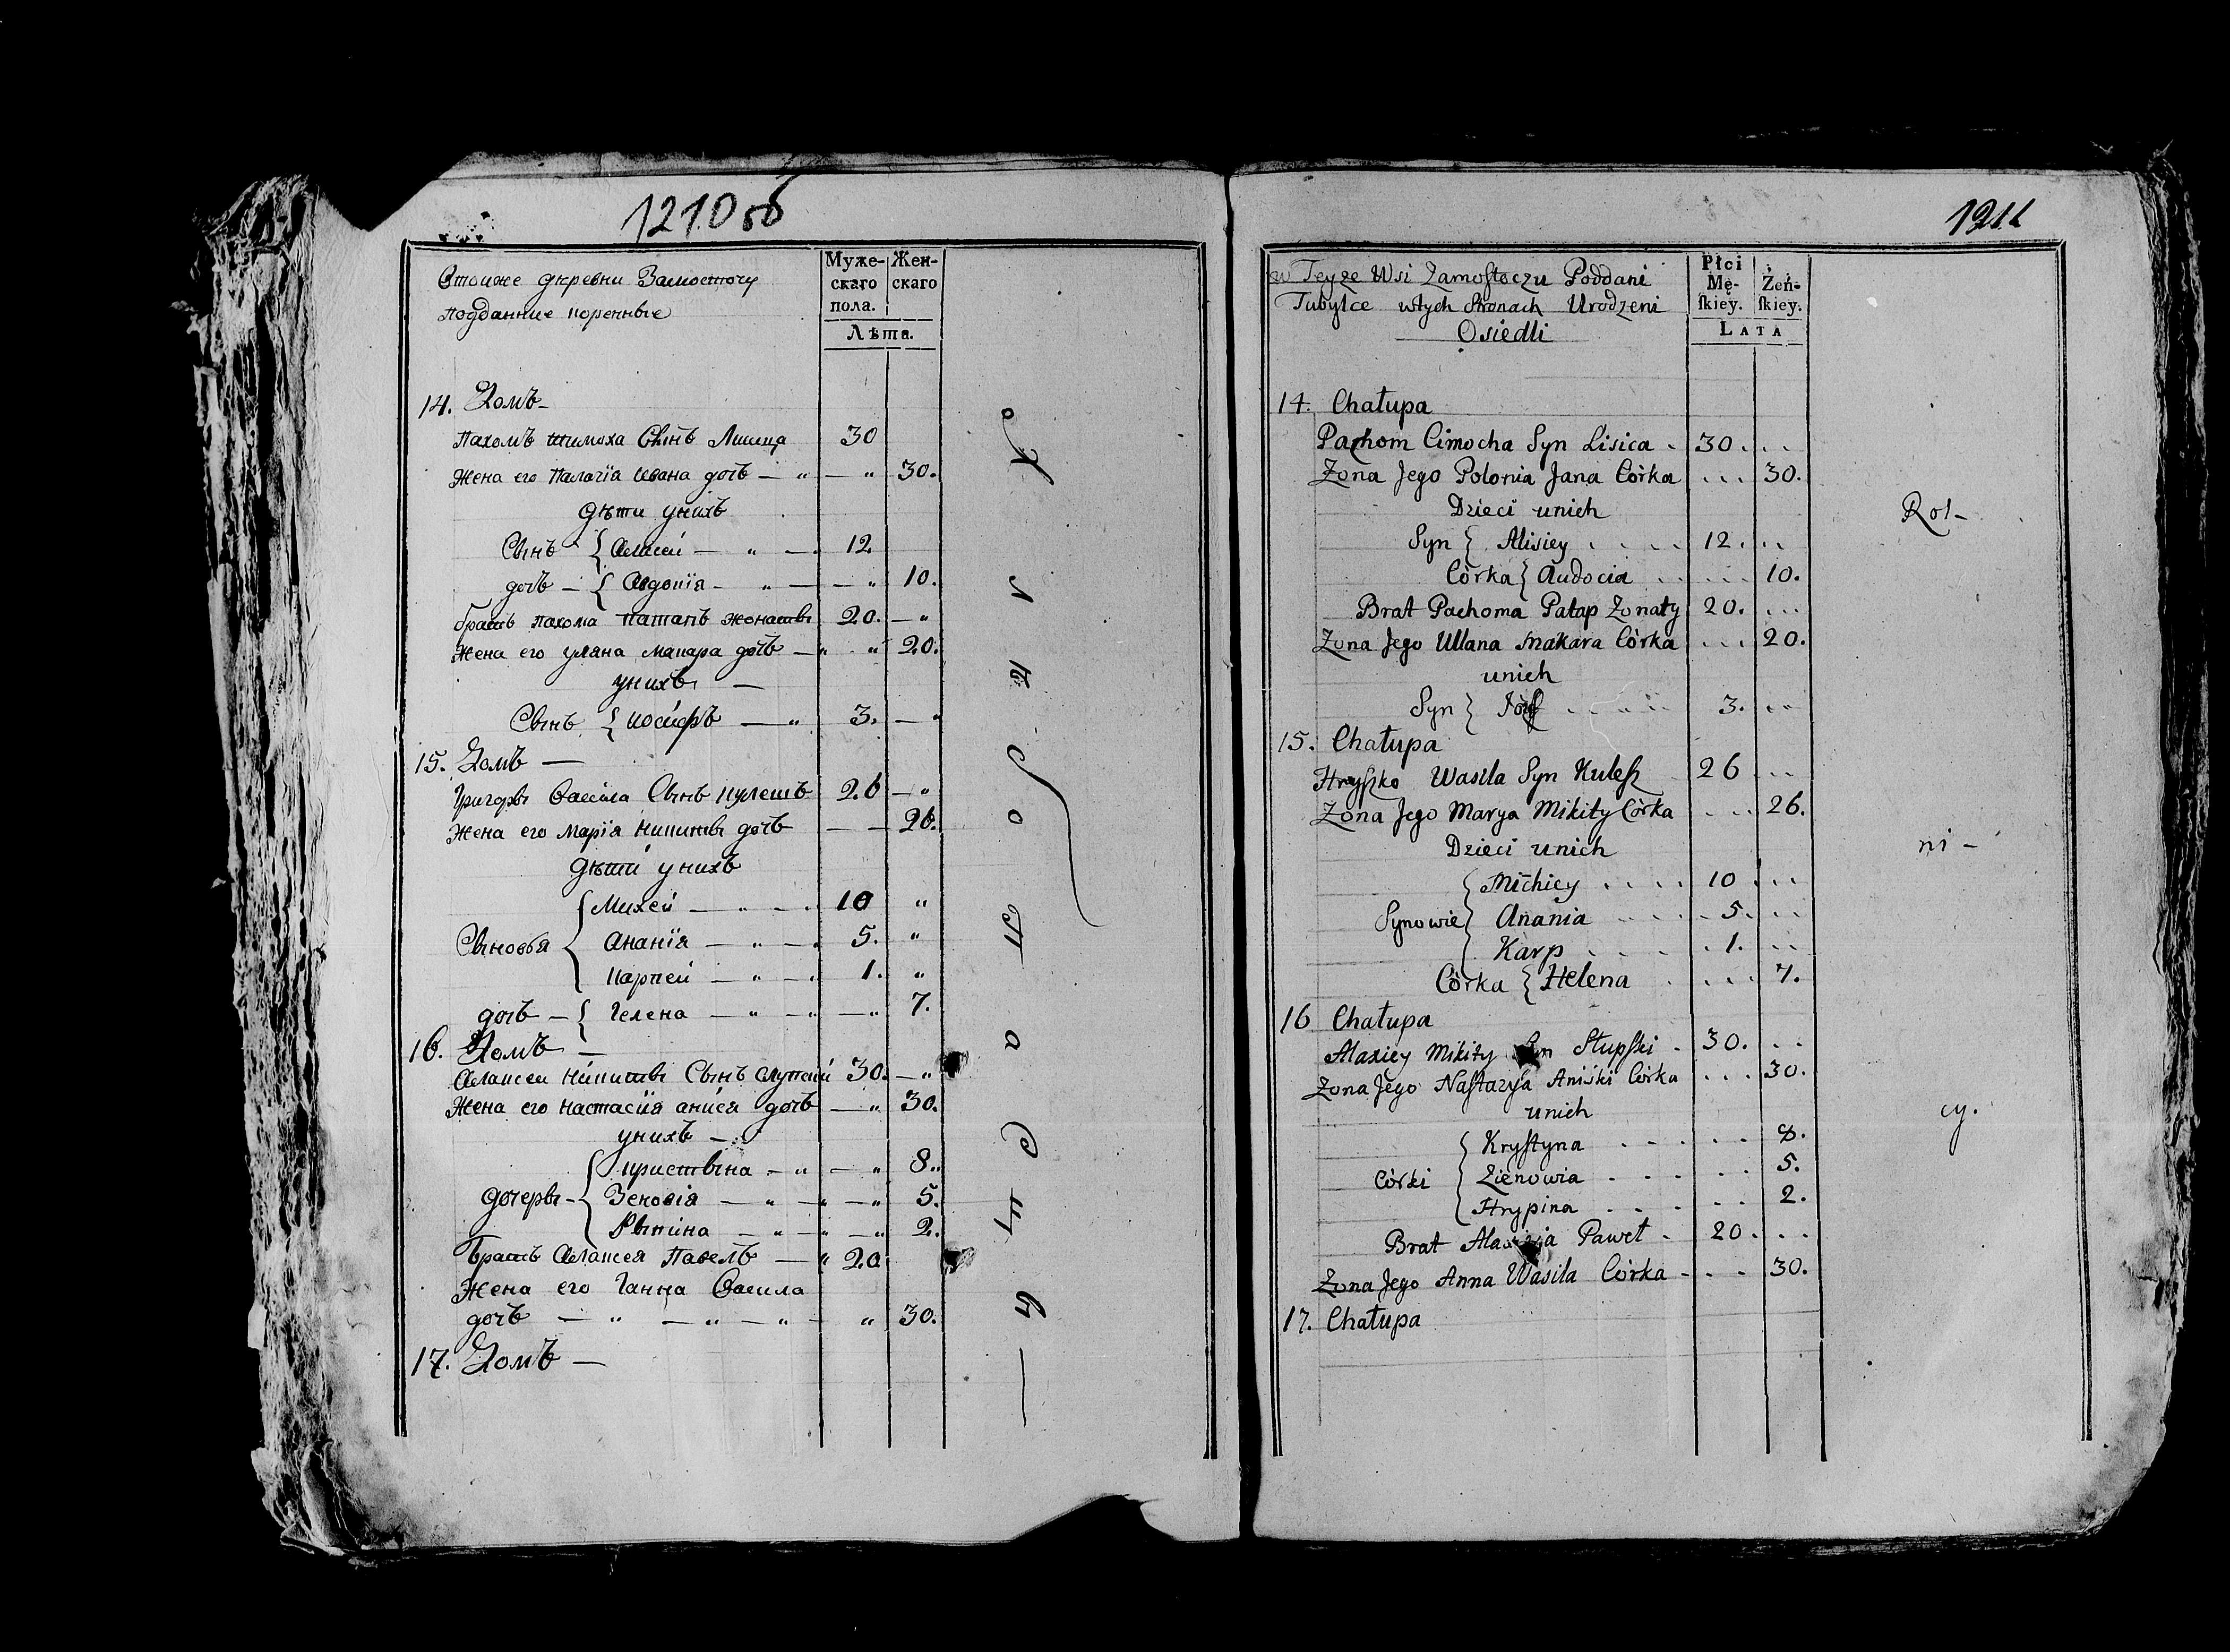 1210 об
Втоиже деревни Замосточу
подданние коренные
Муже-
скаго
пола.
Жен-
скаго
Лѣта.
14. Домъ
Пахомъ тимоха Сынъ Лисица 30
Жена его Палагія Ивана дочъ — „ — „ 30.
дѣти унихъ
Сынъ { Алисей — „ — 12.
дочъ — { Авдоція — „ — — „ 10.
братъ пахома патапъ женаты 20. — „
Жена его уляна макара дочъ — „ „ 20.
унихъ —
Сынъ { иосифъ — „ 3. — „
15. Домъ —
Григоры Васила Сынъ кулешъ 26 — „
Жена его Марія Никиты дочъ — — 26.
дѣти унихъ
Сыновья { Михей — „ — 10 „
Ананія — „ — 5. „
Карпей — „ — „ 1. „
дочъ — { Гелена — „ — „ — „ 7.
16. Домъ —
Алаксеи Никиты Сынъ Слупский 30. — „
Жена его настасия анися дочъ — „ 30.
унихъ —
дочеры — { кристына — „ — „ 8.
Зеновія — „ — „ — „ 5.
„ — „ — „ 2.
братъ Алаксея Павелъ — „ 20
Жена его Ганна Васила
дочъ — „ — „ — „ — „ 30.
17. Домъ —
1211
w Teyze Wsi Zamostoczu Poddani
Tubylce wtych Stronach Urodzeni
Osiedli
Płci
Mę-
skiey.
Żeń-
skiey.
LATA
14. Chałupa
Pachom Cimocha Syn Lisica . 30 . . .
Zona Jego Polonia Jana Córka . . . 30.
Dzieci unich
Syn { Alisiey . . . . 12 . . .
Córka { Audocia . . . . . 10.
Brat Pachoma Patap Zonaty 20. . . .
Zona Jego Ullana Makara Córka . . . 20.
unich
Syn { . . . . 3. . .
15. Chałupa
Hryszko Wasila Syn Kulesz 26 . . .
Zona Jego Marya Mikity Córka . . . 26.
Dzieci unich
Synowie { Michiey . . . . 10 . . .
Anania . . . . 5. . .
Karp . . . . . 1. . .
Córka { Helena . . . . 7.
16 Chałupa
Alaxiey Mikity Syn Słupski . 30. . .
Zona Jego Nastazya Aniśki Córka . . . 30.
unich
Córki { Krystyna . . . . . 8.
Zienowia . . . . . 5.
Hrypina . . . . . 2.
Brat Alaxieja Paweł . 20 . . .
Zona Jego Anna Wasila Córka . . . 30.
17. Chałupa
Rol-
ni -
cy.